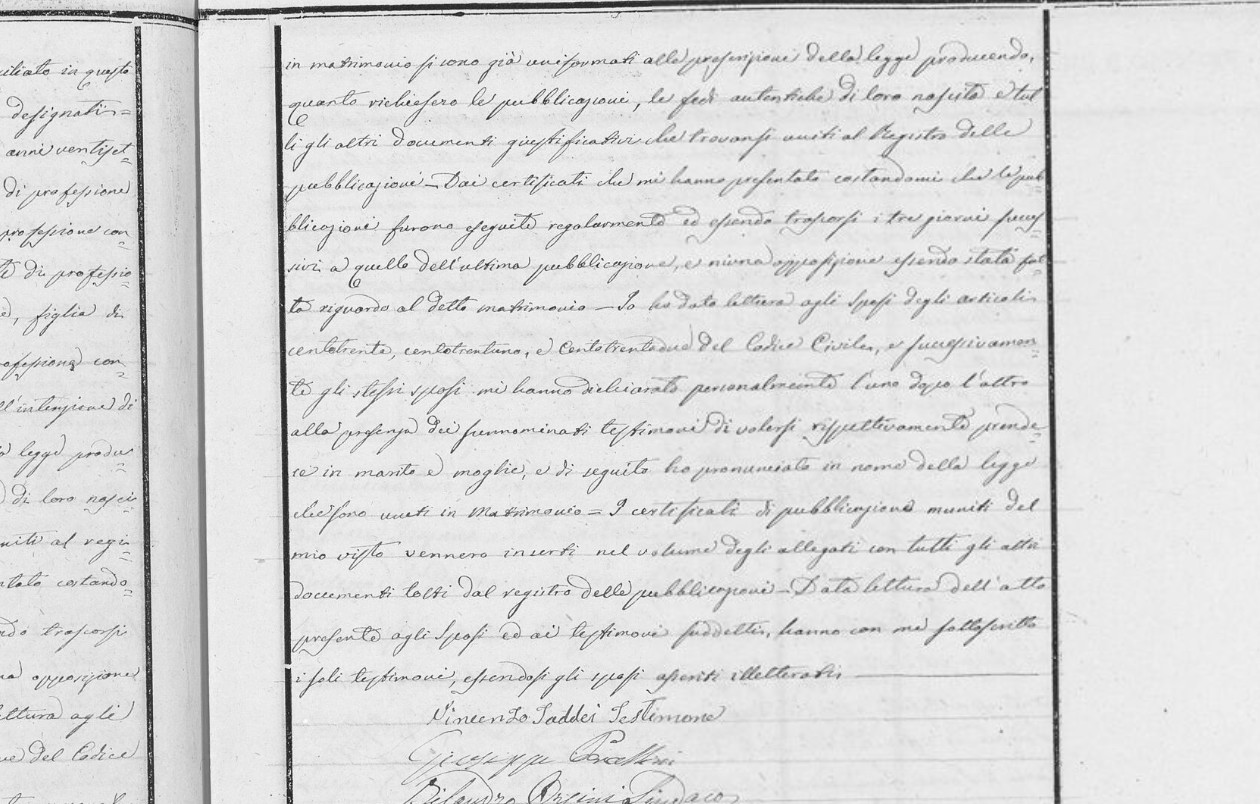 ciliato in questo
designati=
anni ventiset=
di professione
professione con=
te di professio
e, figlia di
rofessione con=
ll'intenzione di
a legge produ=
di loro nasci=
niti al regi=
ntato costando=
ndo trascorsi
na opposizione
ettura agli
ue del Codice
in matrimonio si sono già uniformati alle prescrizioni della legge producendo,
quanto richiesero le pubblicazioni, le fedi autentiche di loro nascita e tut
ti gli altri documenti giustificativi che trovansi uniti al Registro delle
pubblicazioni — Dai certificati che mi hanno presentato costandomi che le pub=
blicazioni furono eseguite regolarmente ed essendo trascorsi i tre giorni succes=
sivi a quello dell'ultima pubblicazione, e niuna opposizione essendo stata fat=
ta riguardo al detto matrimonio — Io ho dato lettura agli sposi degli articoli
centotrenta, centotrentuno, e Centotrentadue del Codice Civile, e successivamen=
te gli stessi sposi mi hanno dichiarato personalmente l'uno dopo l'altro
alla presenza dei sunnominati testimoni di volersi rispettivamente prende=
re in marito e moglie, e di seguito ho pronunciato in nome della legge
che sono uniti in Matrimonio = I certificati di pubblicazione muniti del
mio visto vennero inserti nel volume degli allegati con tutti gli altri
documenti tolti dal registro delle pubblicazioni — Data lettura dell'atto
presente agli Sposi ed ai testimoni suddetti, hanno con me sottoscritto
i soli testimoni, essendosi gli sposi asseriti illetterati
Vincenzo Taddei Testimone
Giuseppe
Orsini Sindaco